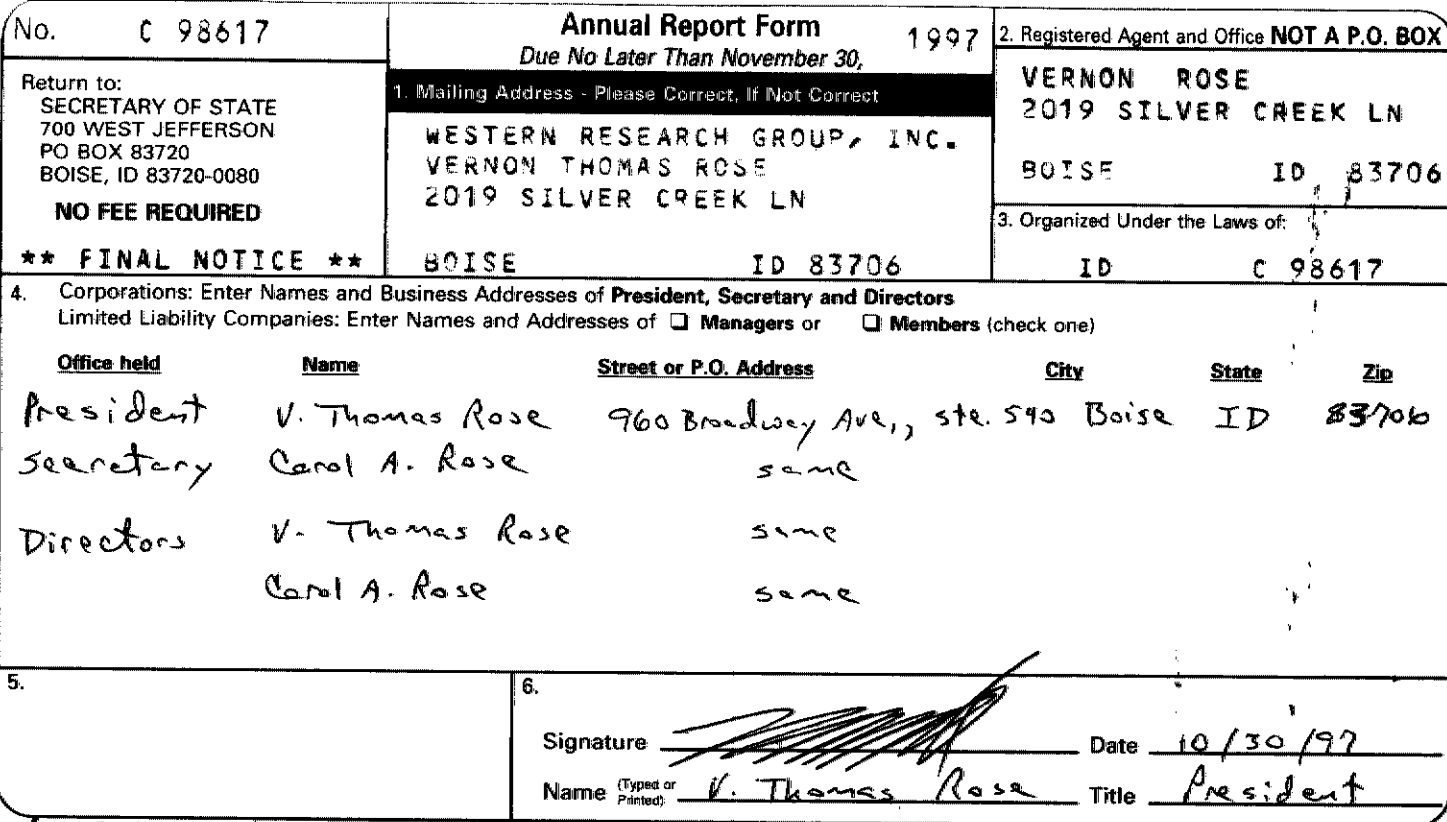 No. C 98617
Return to:
SECRETARY OF STATE
700 WEST JEFFERSON
PO BOX 83720
BOISE, ID 83720-0080
NO FEE REQUIRED
** FINAL NOTICE **
Annual Report Form 1997
Due No Later Than November 30,
1. Mailing Address - Please Correct, If Not Correct
WESTERN RESEARCH GROUP, INC.
VERNON THOMAS ROSE
2019 SILVER CREEK LN
BOISE ID 83706
2. Registered Agent and Office NOT A P.O. BOX
VERNON ROSE
2019 SILVER CREEK LN
BOISE ID 83706
3. Organized Under the Laws of:
ID C 98617
4. Corporations: Enter Names and Business Addresses of President, Secretary and Directors
Limited Liability Companies: Enter Names and Addresses of ☐ Managers or ☐ Members (check one)
Office held Name Street or P.O. Address City State Zip
President V. Thomas Rose 960 Broadway Ave,, ste. 540 Boise ID 83706
Secretary Carol A. Rose same
Directors V. Thomas Rose same
Carol A. Rose same
5.
6.
Signature Date 10/30/97
Name (Typed or Printed) V. Thomas Rose Title President